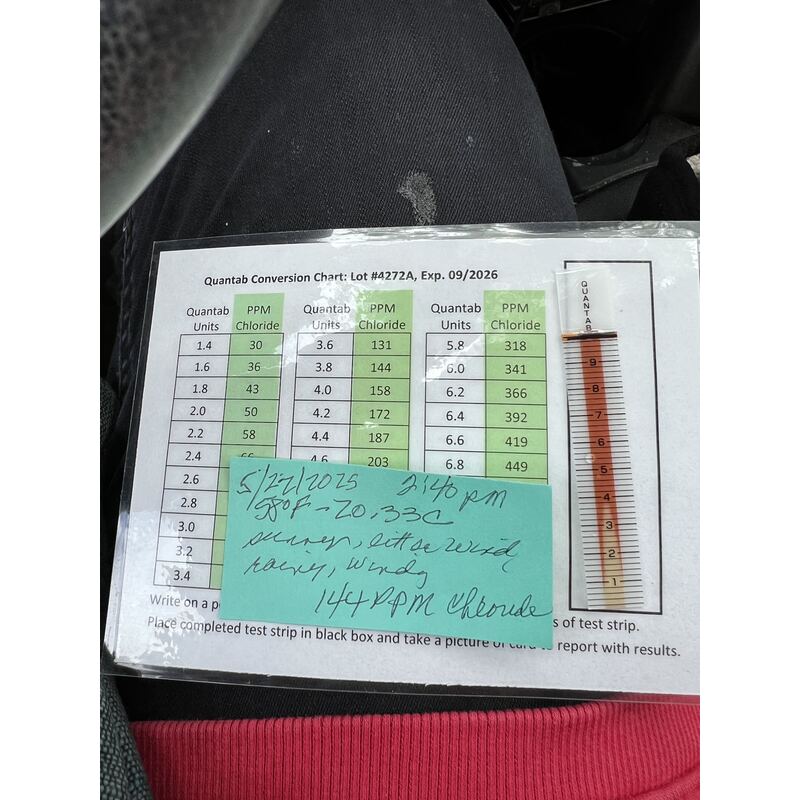 Quantab Conversion Chart: Lot #4272A, Exp. 09/2026
Quantab Units PPM Chloride Quantab Units PPM Chloride Quantab Units PPM Chloride
1.4 30 3.6 131 5.8 318
1.6 36 3.8 144 6.0 341
1.8 43 4.0 158 6.2 366
2.0 50 4.2 172 6.4 392
2.2 58 4.4 187 6.6 419
2.4 66 4.6 203 6.8 449
2.6
2.8
3.0
3.2
3.4
5/27/2025 2:40 pm
58°F - 20.33C
sunny, little wind,
rainy, windy
144 PPM Chloride
Write on a p
s of test strip.
Place completed test strip in black box and take a picture of card to report with results.
QUANTAB
9
8
7
6
5
4
3
2
1